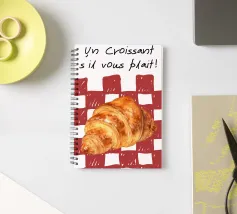 Un Croissant
s'il vous plait!